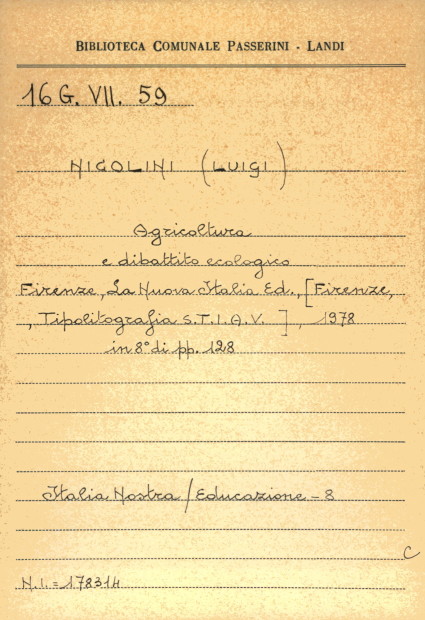 BIBLIOTECA COMUNALE PASSERINI - LANDI
16 G. VII. 59
NICOLINI (LUIGI)
Agricoltura
e dibattito ecologico
Firenze, La Nuova Italia Ed., [Firenze,
, Tipolitografia S.T.I.A.V. ], 1978
in 8° di pp. 128
Italia Nostra / Educazione - 8
C
N.I. = 178314